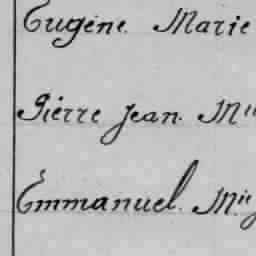 Eugène Marie
Pierre Jean. M
Emmanuel. M